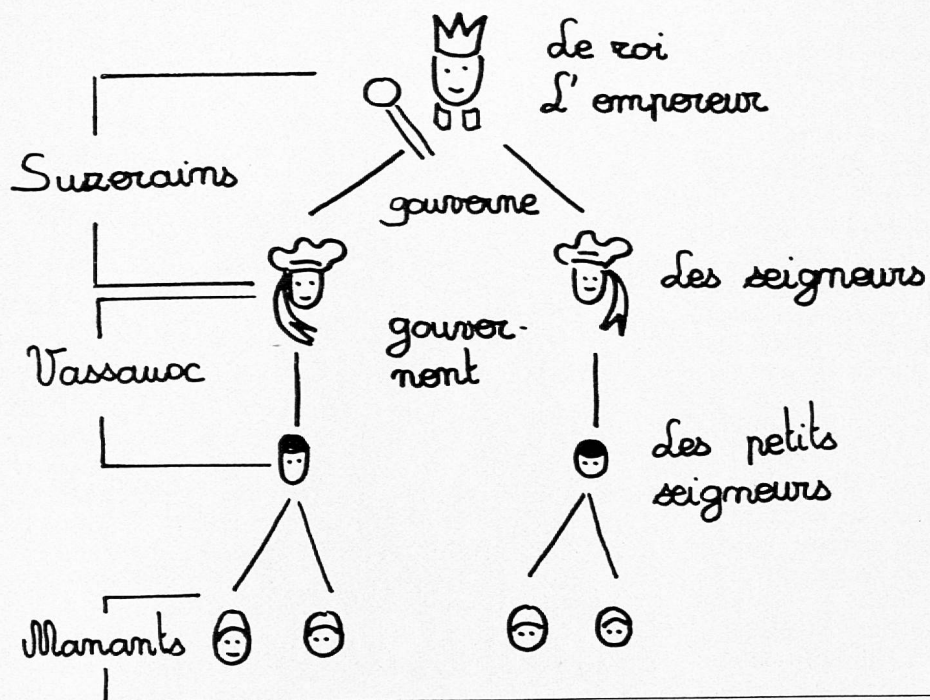 Le roi
L'empereur
Suzerains
gouverne
Les seigneurs
gouver-
nent
Vassaux
Les petits
seigneurs
Manants